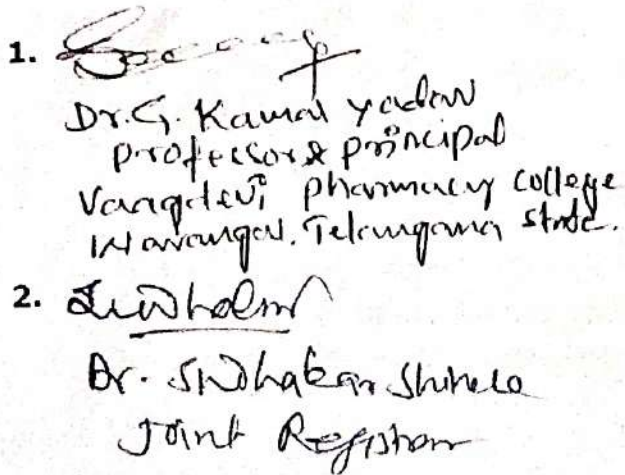 1.
Dr. G. Kamal Yadav
Professor & Principal
Vaagdevi Pharmacy College
Warangal. Telangana State.
2.
Dr. Sudhakar
Joint Registrar